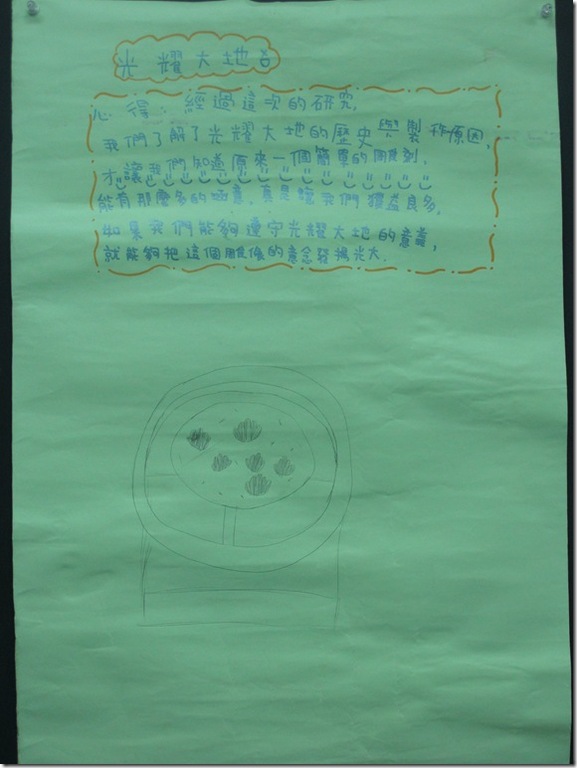 光耀大地
心得:經過這次的研究,
我們了解了光耀大地的歷史與製作原因,
才讓我們知道原來一個簡單的雕刻,
能有那麼多的涵意,真是讓我們獲益良多,
如果我們能夠遵守光耀大地的意義,
就能夠把這個雕像的意念發揚光大.